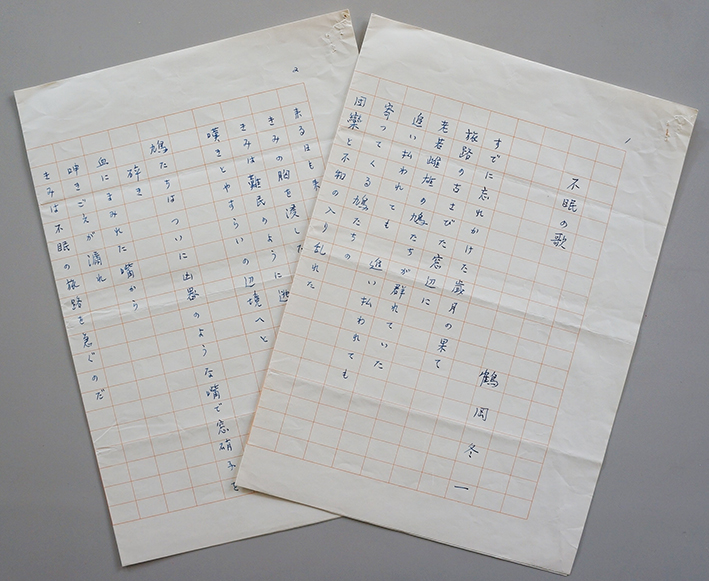 1
不眠の歌
鶴岡冬一
すでに忘れかけた歳月の果て
旅路の古さびた窓辺に
老若雌雄の鳩たちが群れていた
追い払われても 追い払われても
寄ってくる鳩たちの
団欒と不和の入り乱れた
2
来る日も来
きみの胸を浸した
きみは難民のように
嘆きとやすらいの辺境へと
鳩たちはついに凶器のような嘴で窓硝子を
砕き
血にまみれた嘴から
呻きごえが漏れ
きみは不眠の旅路を急ぐのだ